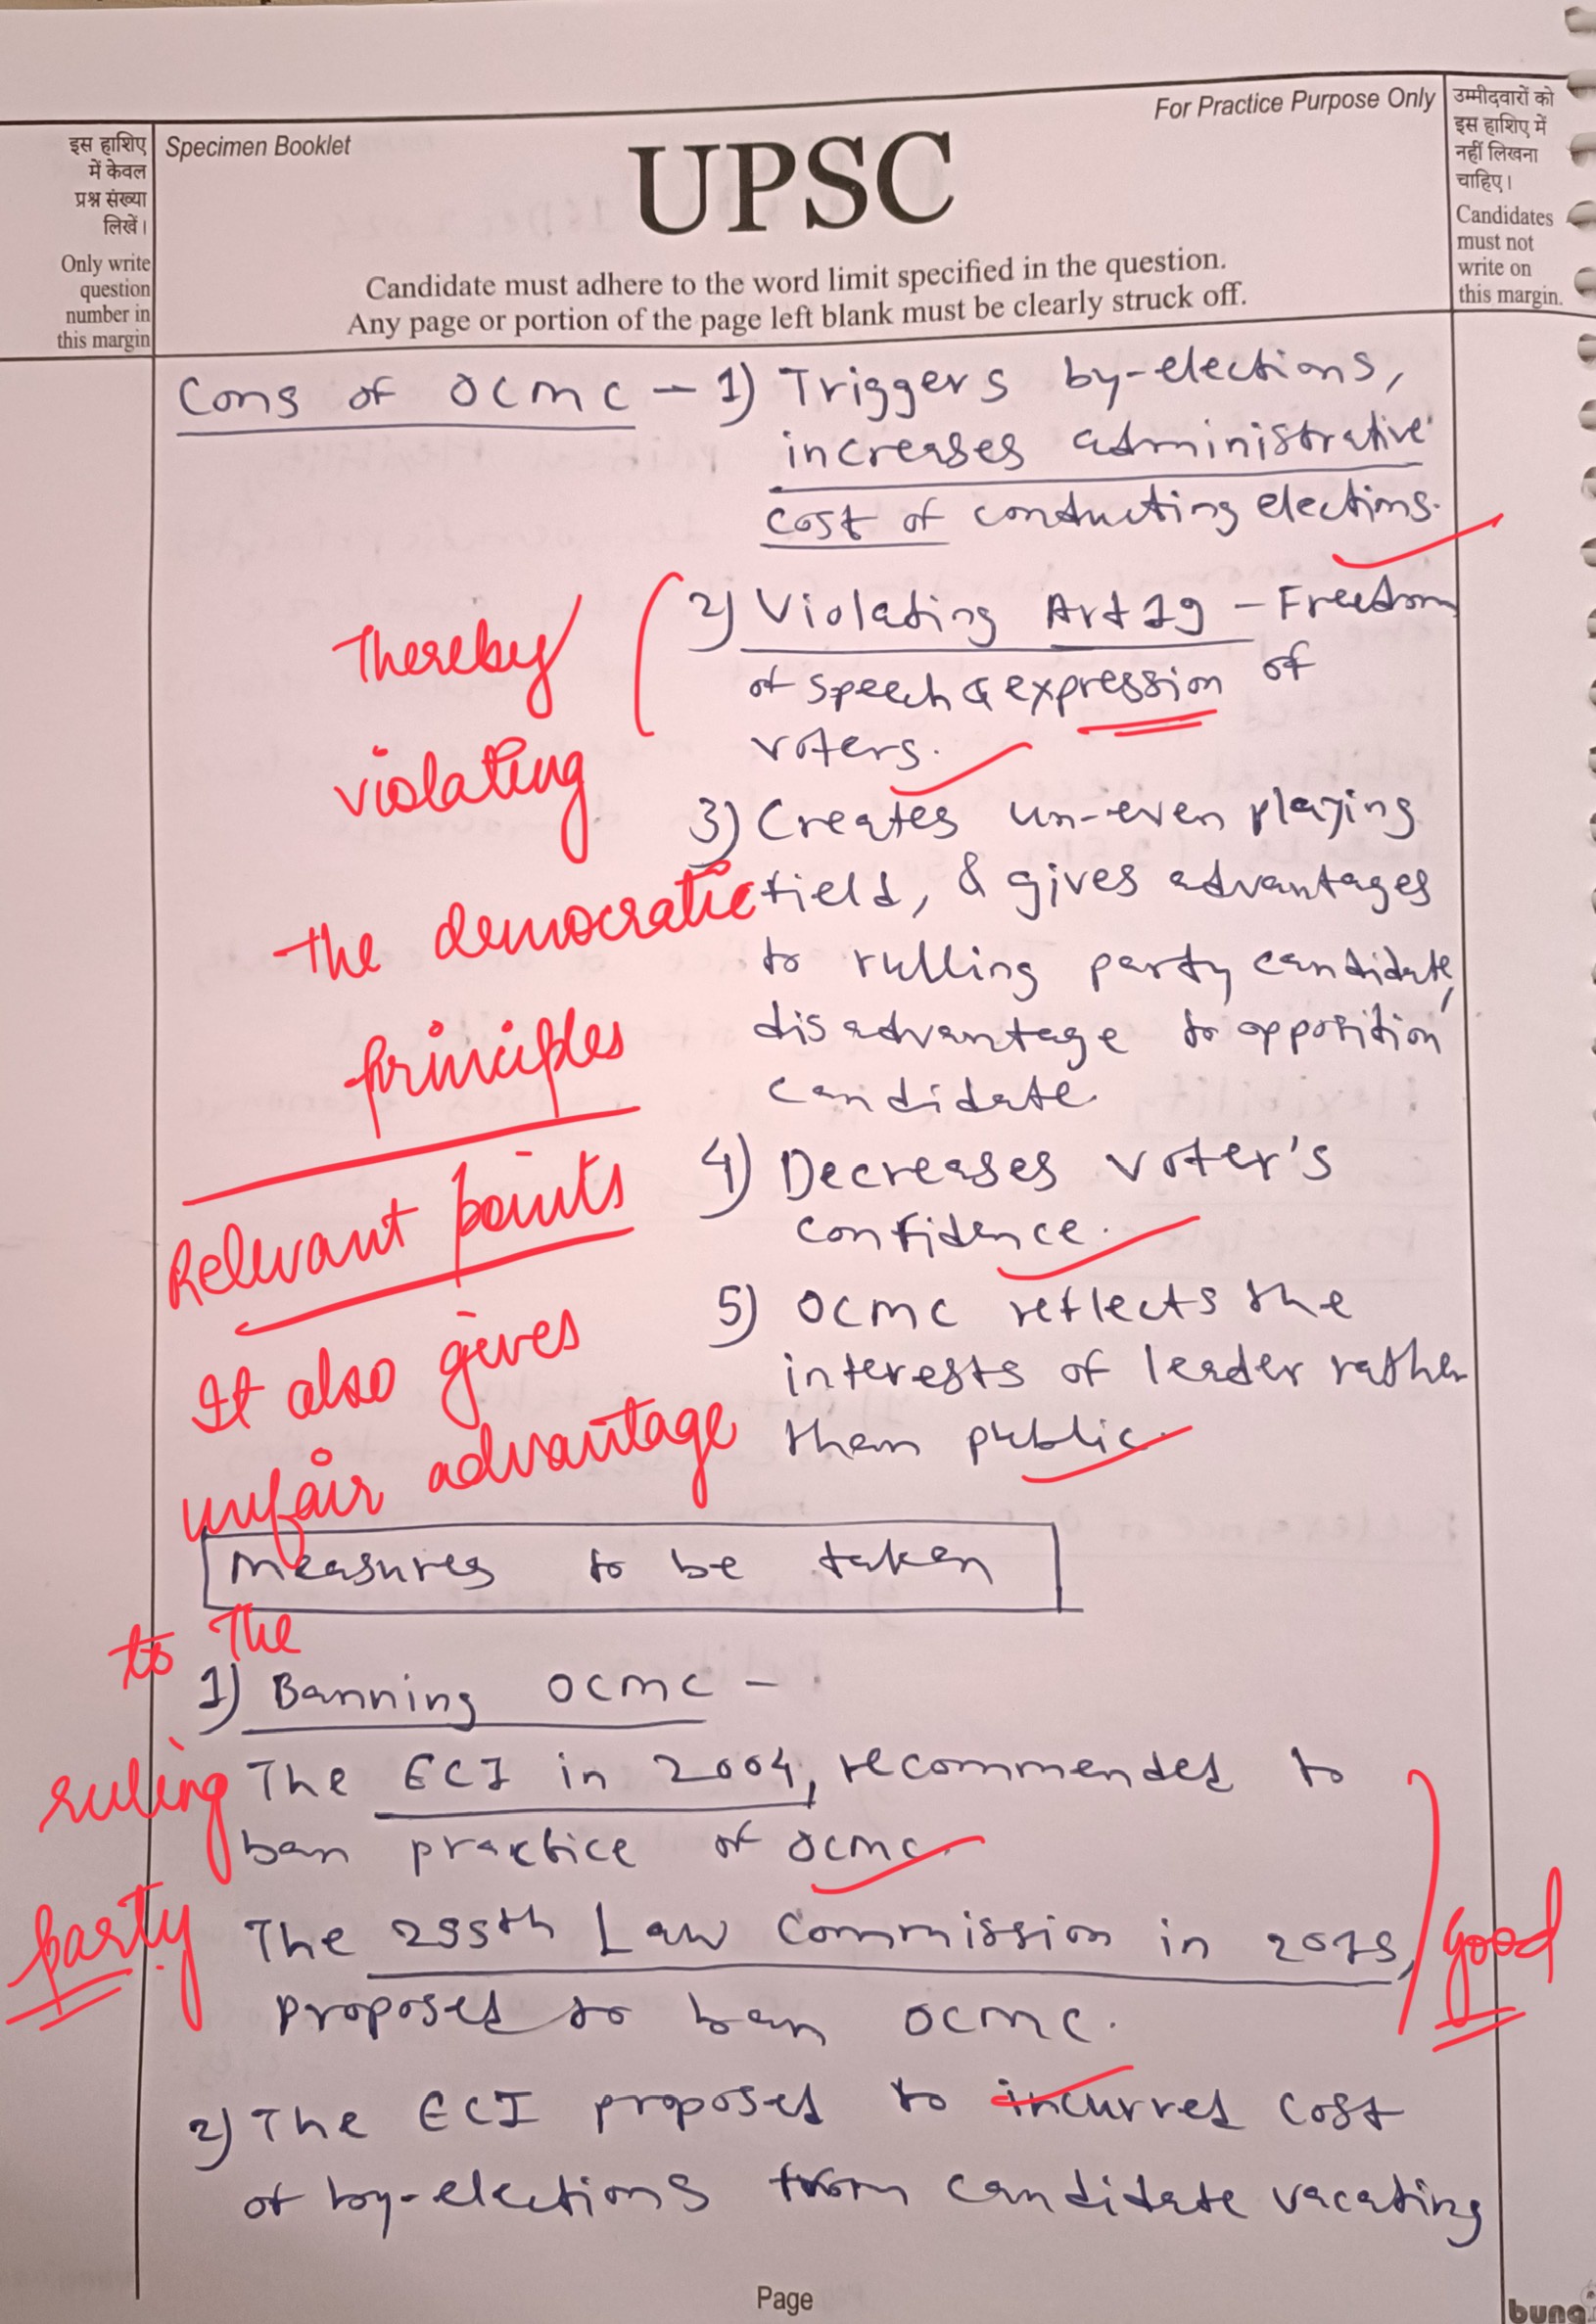 For Practice Purpose Only
इस हाशिए
में केवल
प्रश्न संख्या
लिखें।
Only write
question
number in
this margin
Specimen Booklet
UPSC
उम्मीदवारों को
इस हाशिए में
नहीं लिखना
चाहिए।
Candidates
must not
write on
this margin.
Candidate must adhere to the word limit specified in the question.
Any page or portion of the page left blank must be clearly struck off.
Cons of OCMC - 1) Triggers by-elections,
increases administrative
cost of conducting elections.
2) Violating Art 19 - Freedom
of speech & expression of
voters.
3) Creates un-even playing
field, & gives advantages
to rulling party candidate,
disadvantage to opposition
candidate.
4) Decreases voter's
confidence.
5) OCMC reflects the
interests of leader rather
than public.
Thereby
violating
the democratic
principles
Relevant points
It also gives
unfair advantage
to the
ruling
party
Measures to be taken
1) Banning OCMC -
The ECI in 2004, recommended to
ban practice of OCMC.
The 255th Law Commission in 2015,
proposed to ban OCMC.
good
2) The ECI proposed to incurred cost
of by-elections from candidate vacating
Page